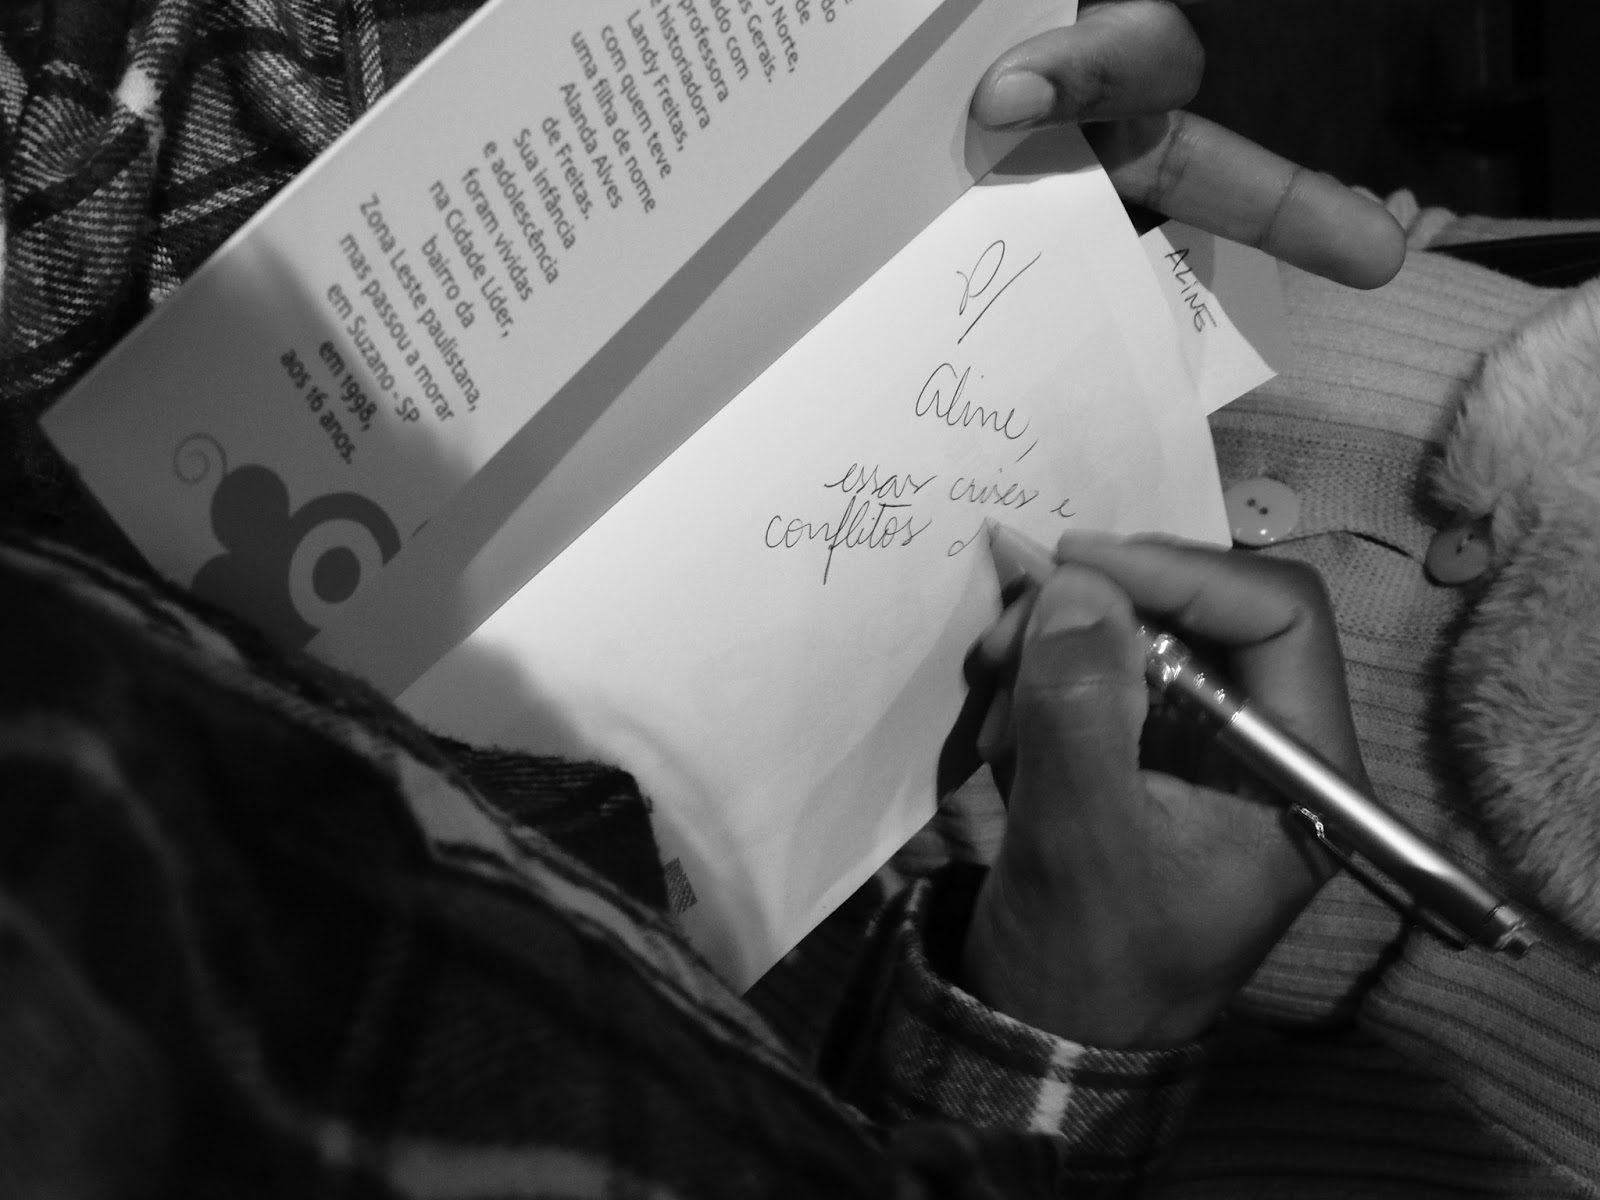 do
de
Norte,
s Gerais.
ado com
professora
e historiadora
Landy Freitas,
com quem teve
uma filha de nome
Alanda Alves
de Freitas.
Sua infância
e adolescência
foram vividas
na Cidade Líder,
bairro da
Zona Leste paulistana,
mas passou a morar
em Suzano - SP
em 1998,
aos 16 anos.
P/
Aline,
essas crises e
conflitos d
ALINE